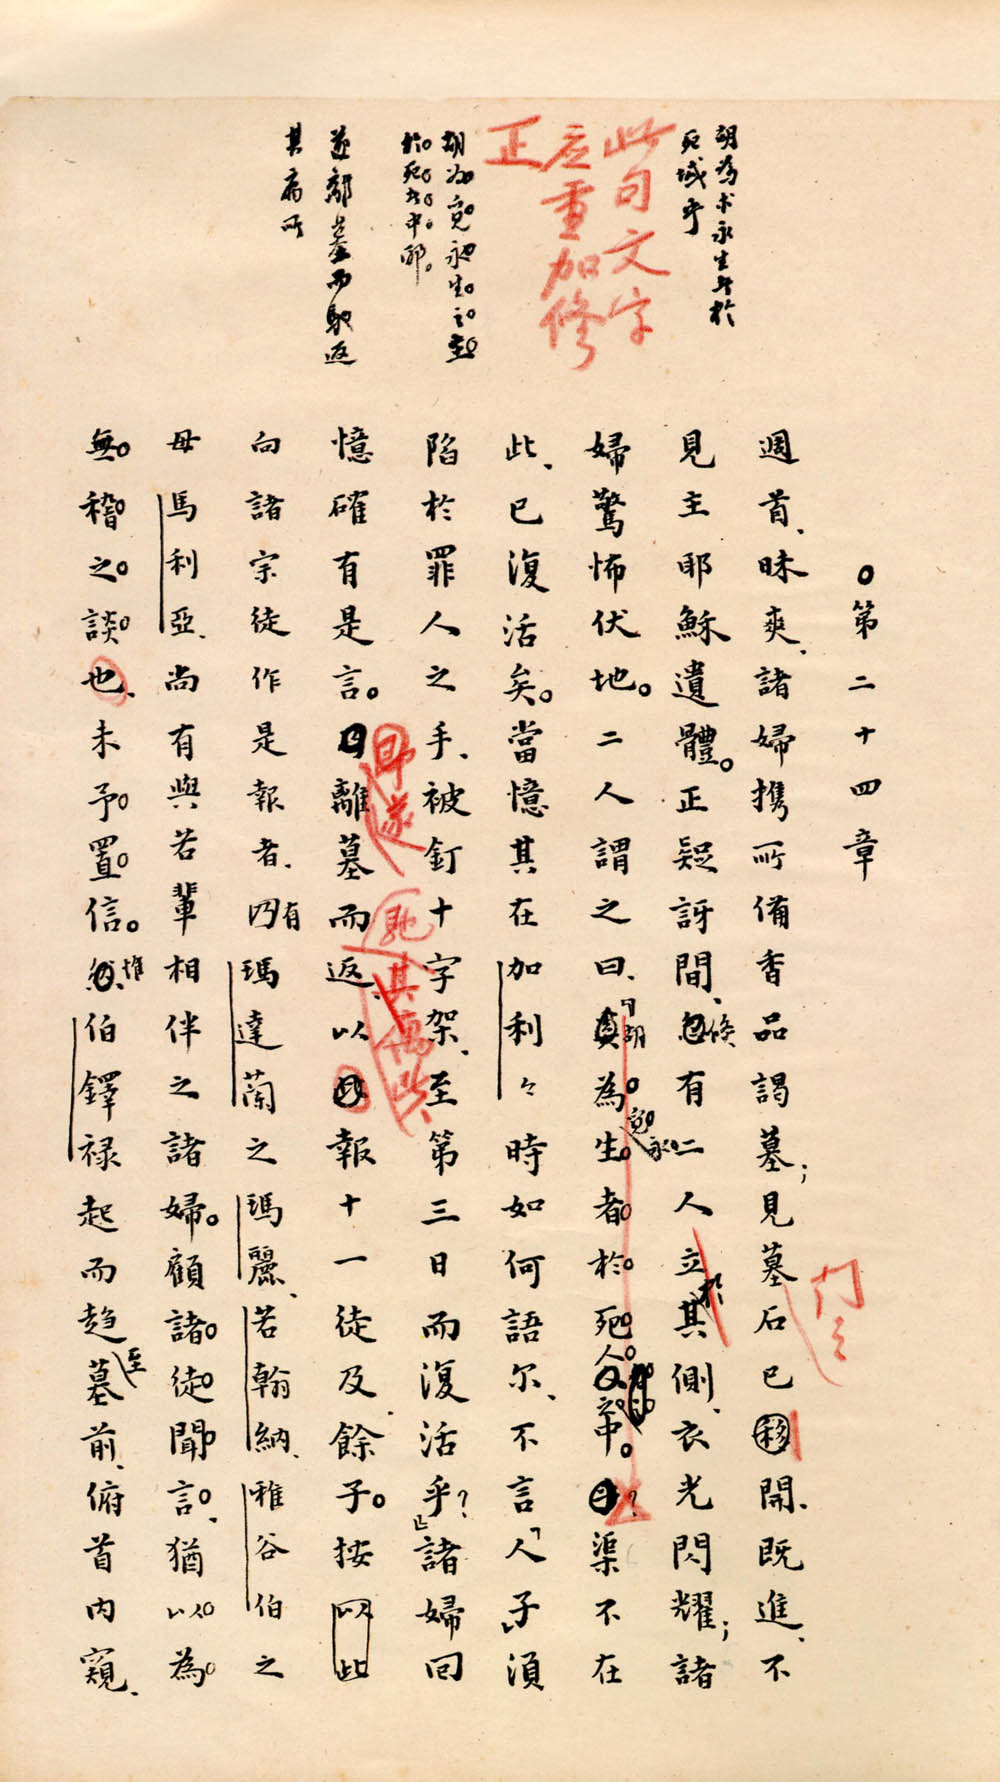 胡為求永生者於
死域乎
此句文字
应重加修
正
胡為覓永生之
於死者中耶。
遂離墓而馳返
其
第二十四章
週首、昧爽、諸婦攜所備香品謁墓;見墓石已移開、既進、不
門之
見主耶穌遺體。正疑訝間、忽倏有二人立於其側、衣光閃耀;諸
婦驚怖伏地。二人謂之曰、「胡為覓永生者於死人之中。?渠不在
此、已復活矣。當憶其在加利々時如何語尔、不言「人子」須
陷於罪人之手、被釘十字架、至第三日而復活乎?」諸婦回
憶確有是言。離墓而返、以報十一徒及餘子。按以此
即遂
馳其
向諸宗徒作是報者、有瑪達蘭之瑪麗、若翰納、雅谷伯之
母馬利亞、尚有與若輩相伴之諸婦。顧諸徒聞言、猶以為
無稽之談也、未予置信。惟伯鐸祿起而趋至墓前、俯首內窺、